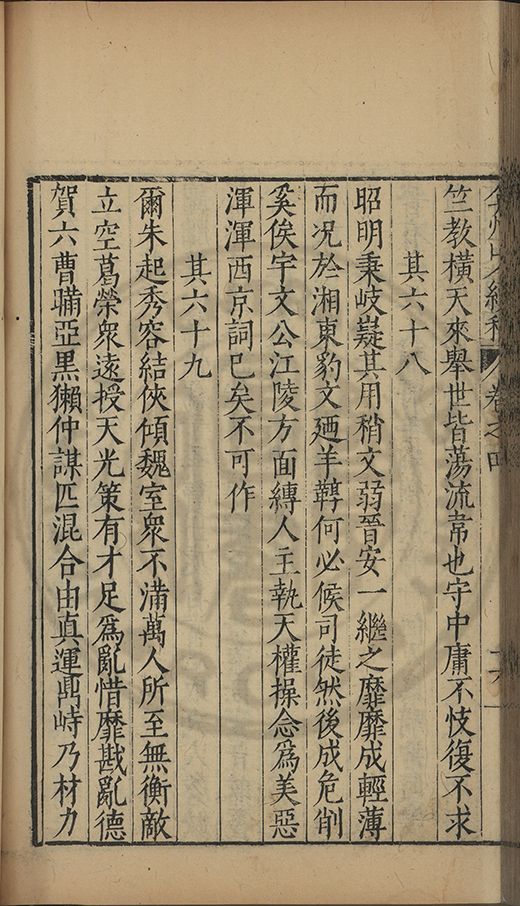 弇州山人續稿 卷之四
竺教橫天來舉世皆蕩流韋也守中庸不忮復不求
其六十八
昭明秉岐嶷其用稍文弱晉安一繼之靡靡成輕薄
而况於湘東豹文廼羊鞟何必候司徒然後成危削
奚俟宇文公江陵方面縛人主執天權操念爲美惡
渾渾西京詞已矣不可作
其六十九
爾朱起秀容結俠傾魏室衆不滿萬人所至無衡敵
立空葛榮衆遠授天光策有才足爲亂惜靡戡亂德
賀六曹瞞亞黑獺仲謀匹混合由真運鼎峙乃材力